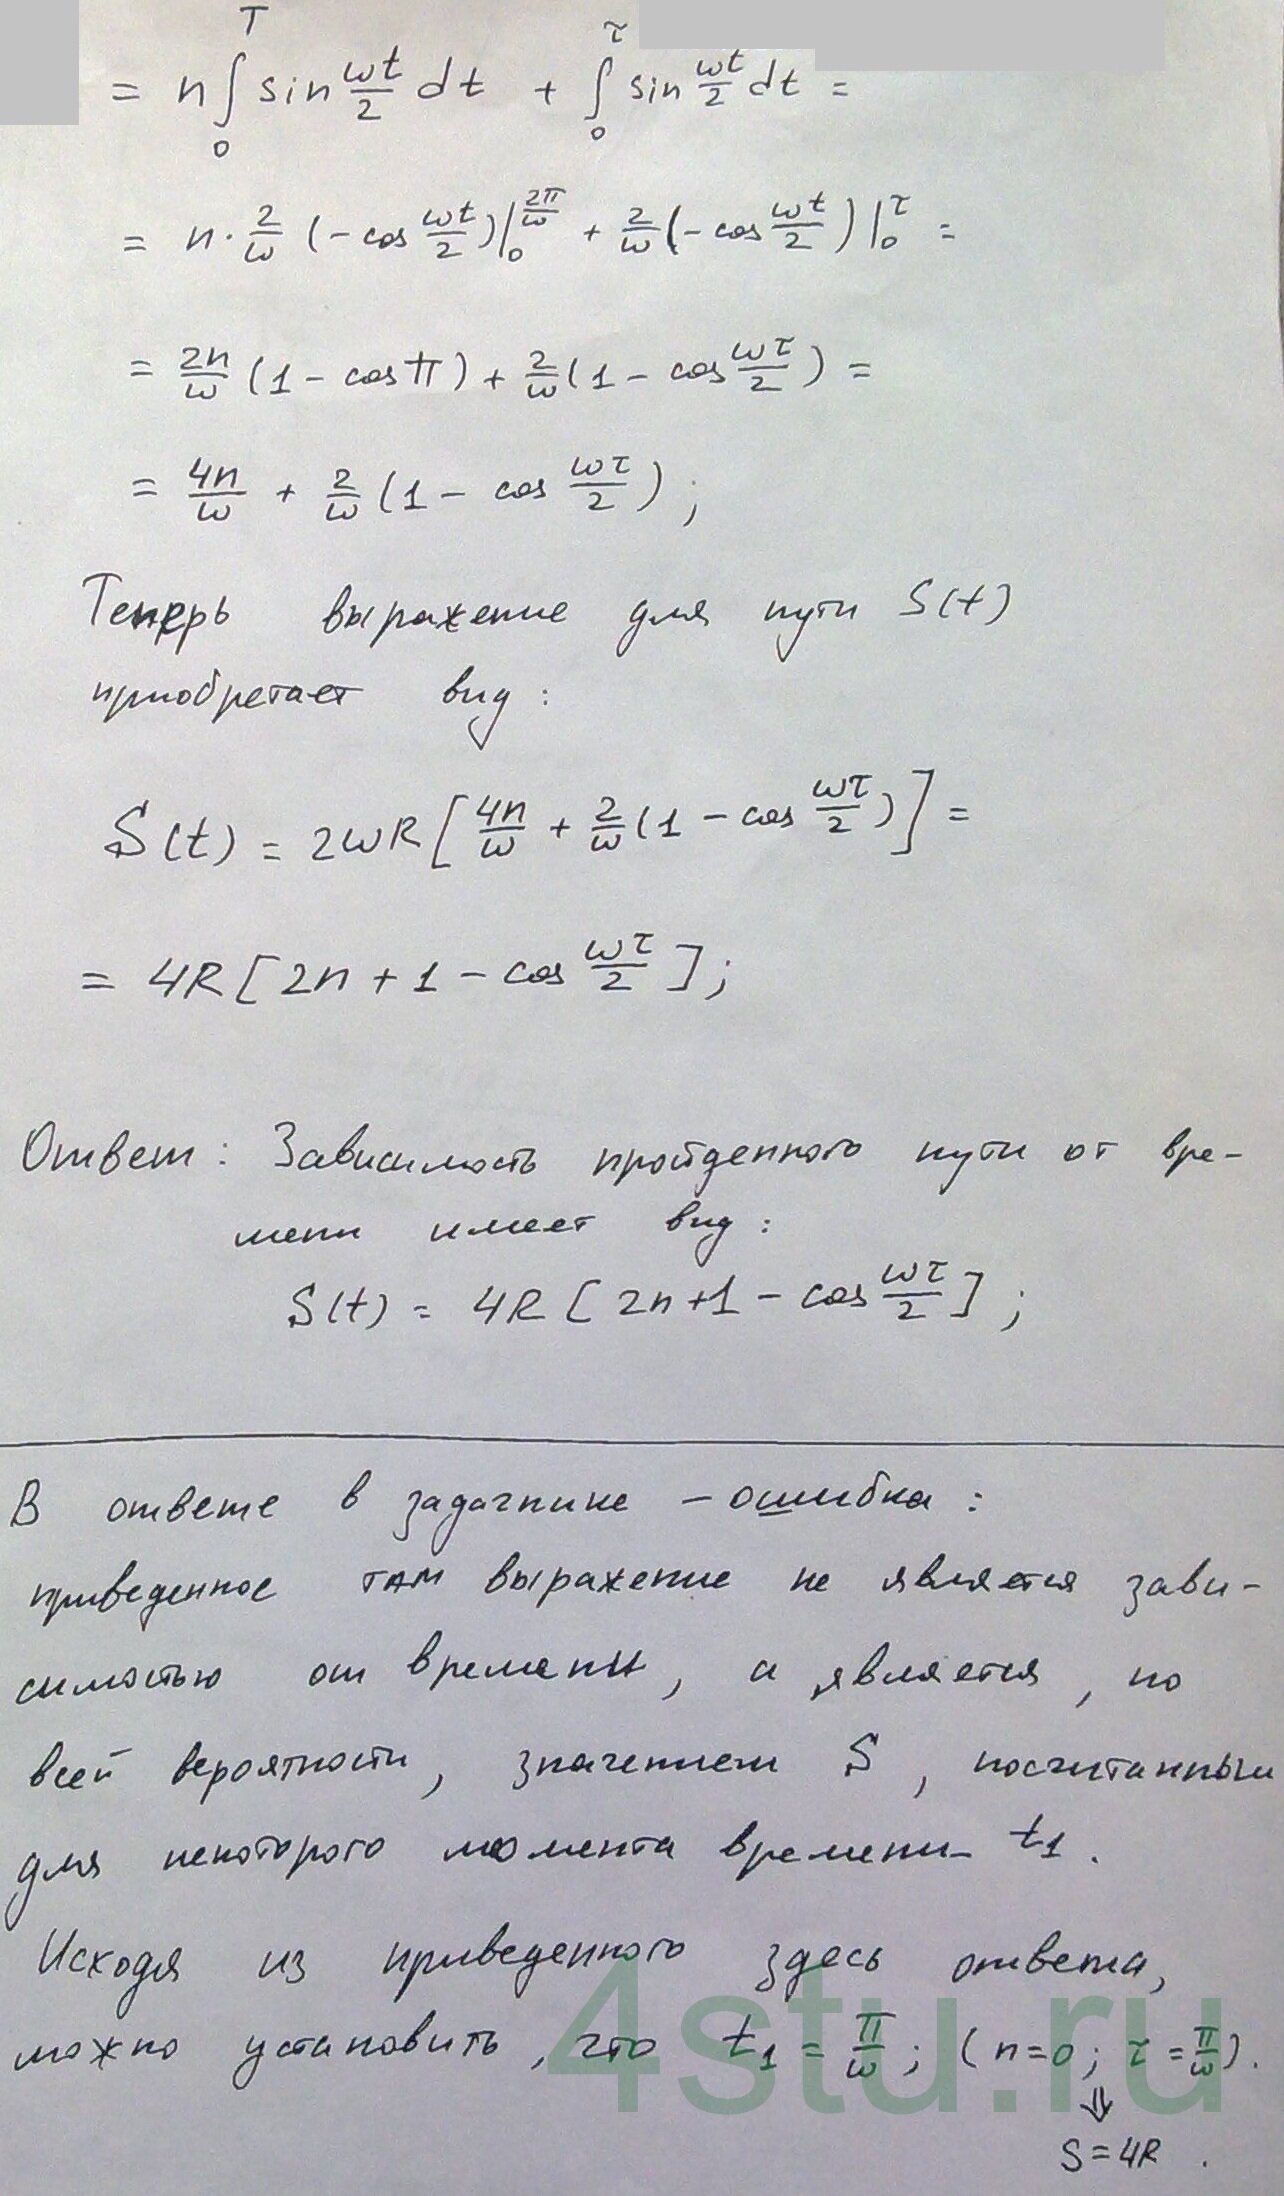 = n∫₀ᵀ sin ωt/2 dt + ∫₀^τ sin ωt/2 dt =
= n · 2/ω (-cos ωt/2)|₀^(2π/ω) + 2/ω (-cos ωt/2)|₀^τ =
= 2n/ω (1 - cos π) + 2/ω (1 - cos ωτ/2) =
= 4n/ω + 2/ω (1 - cos ωτ/2);
Теперь выражение для пути S(t)
приобретает вид:
S(t) = 2ωR[4n/ω + 2/ω (1 - cos ωτ/2)] =
= 4R[2n + 1 - cos ωτ/2];
Ответ: Зависимость пройденного пути от вре-
мени имеет вид:
S(t) = 4R[2n+1 - cos ωτ/2];
В ответе в задачнике - ошибка:
приведенное там выражение не является зави-
симостью от времени, а является, по
всей вероятности, значением S, посчитанным
для некоторого момента времени t₁.
Исходя из приведенного здесь ответа,
можно установить, что t₁ = π/ω; (n=0; τ = π/ω).
⇓
S = 4R.
4stu.ru